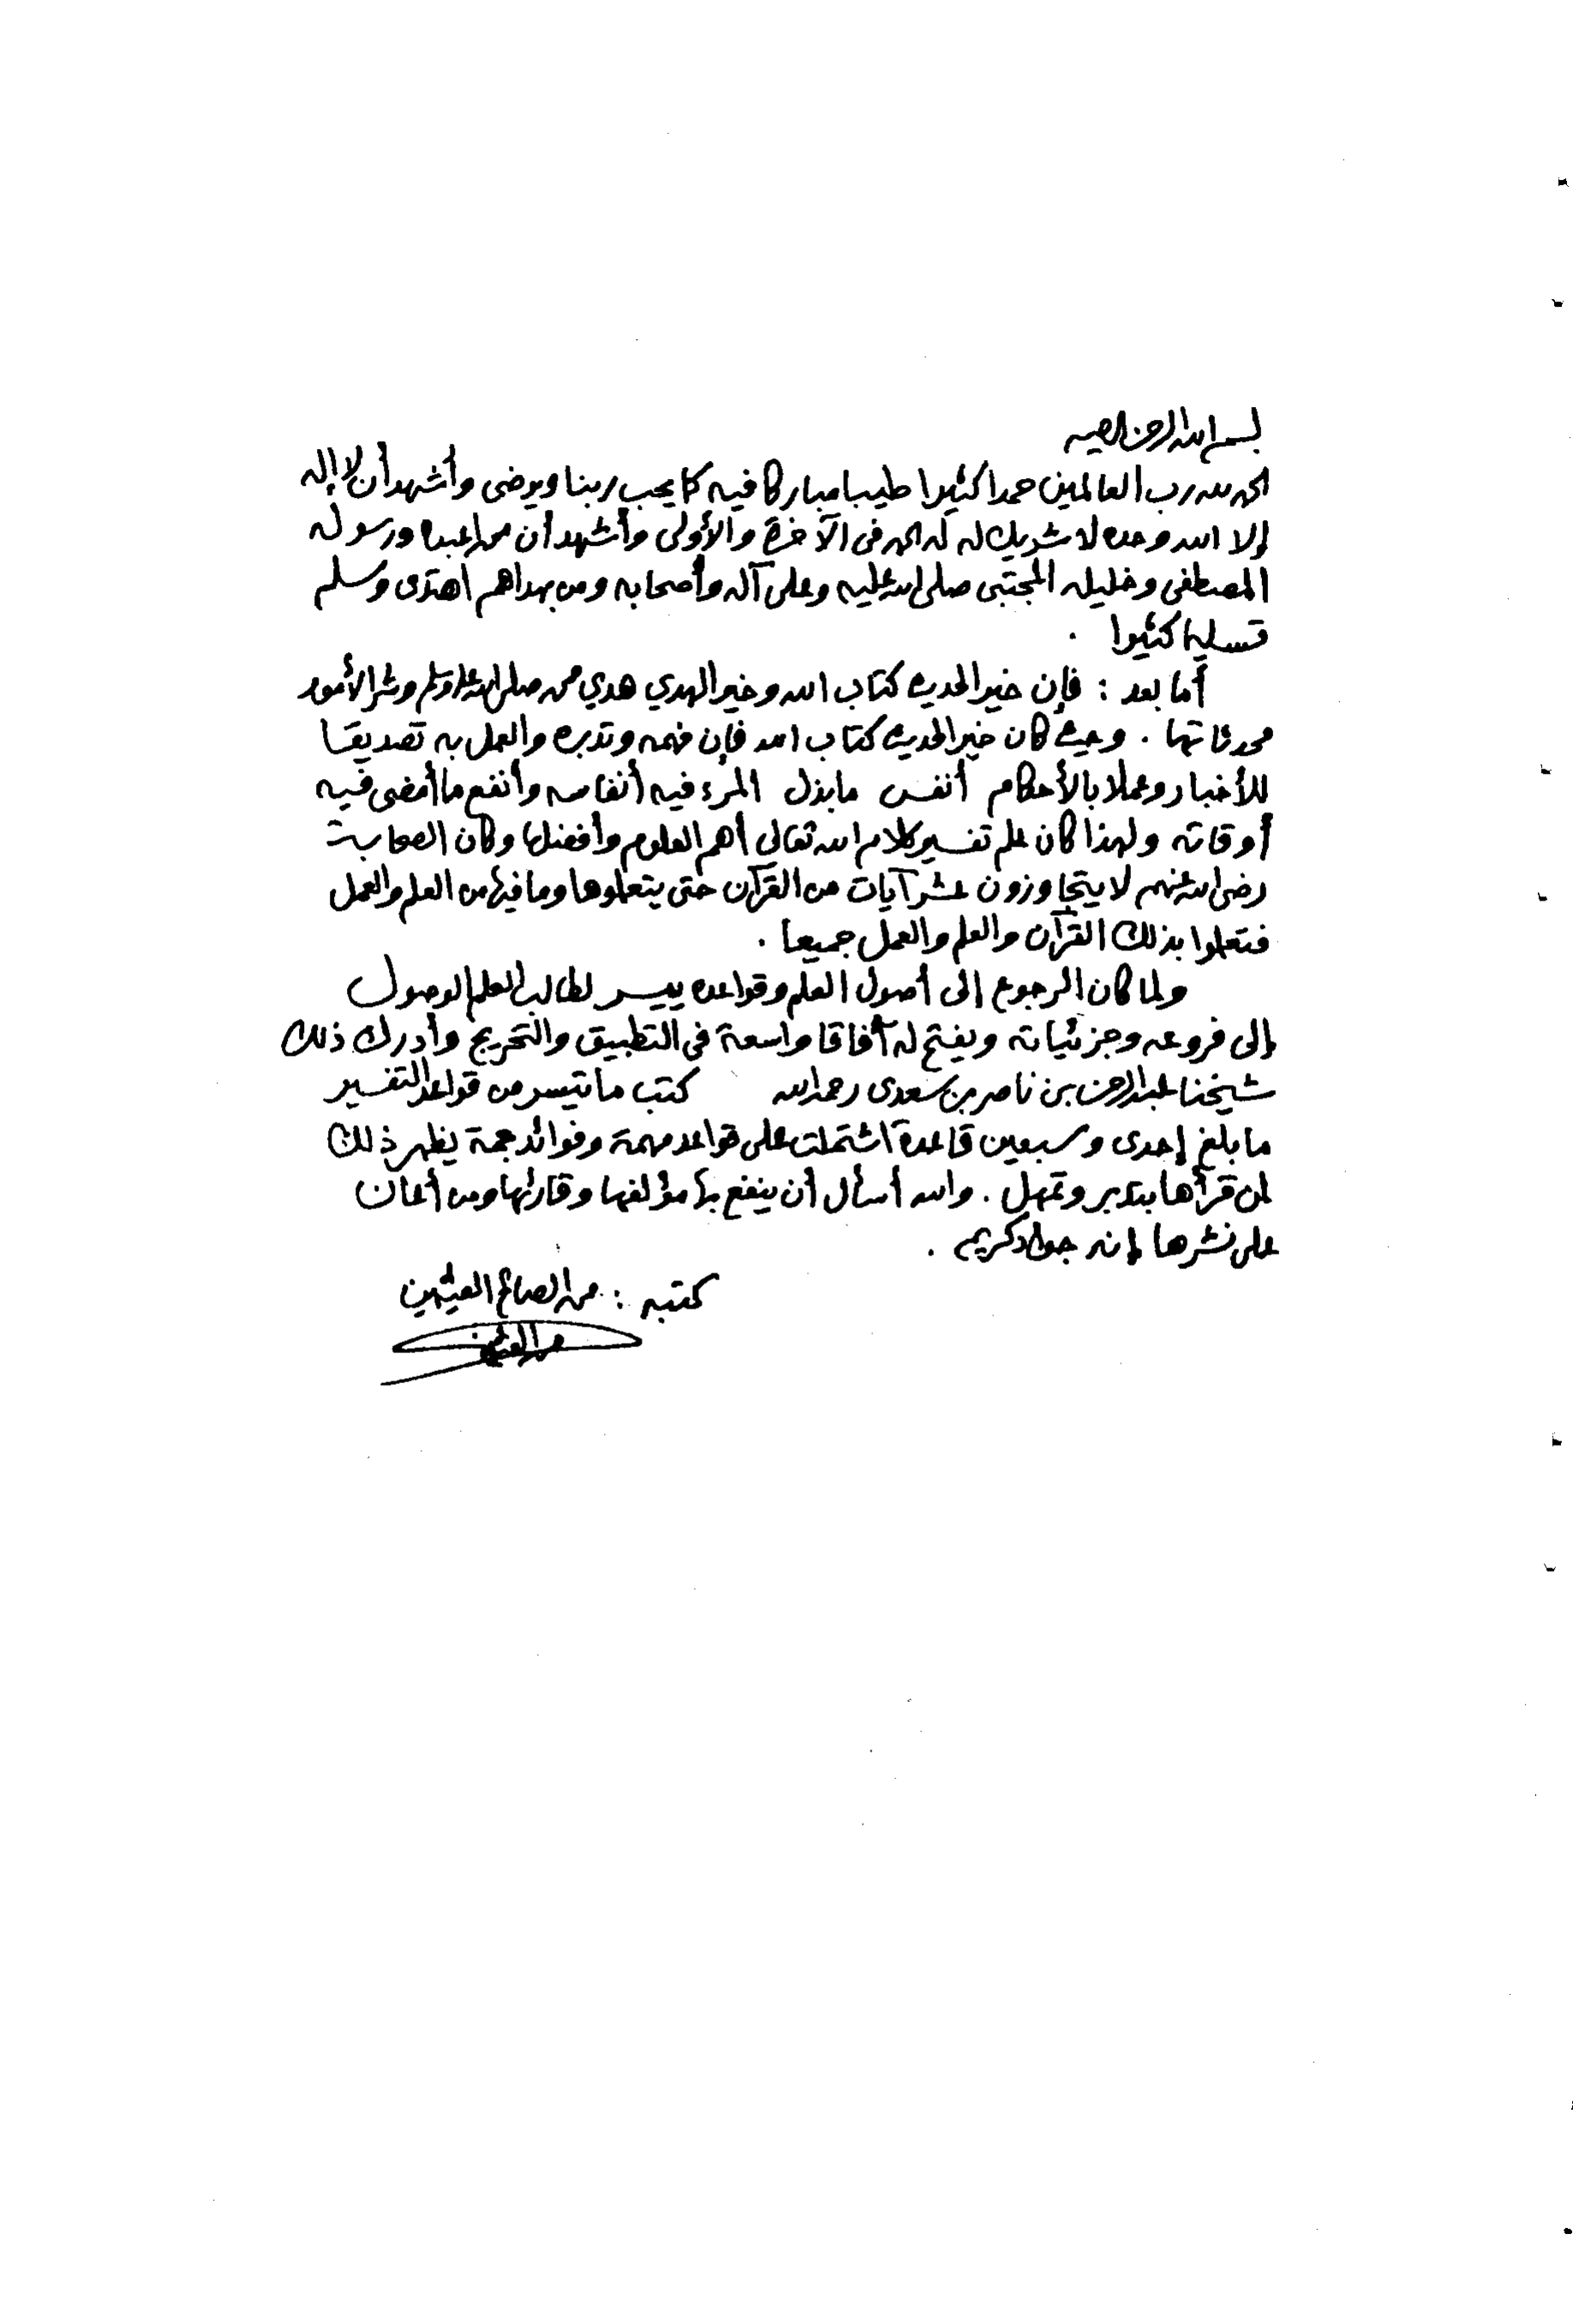 بسم الله الرحمن الرحيم
الحمد لله رب العالمين حمدا كثيرا طيبا مباركا فيه كما يحب ربنا ويرضى وأشهد أن لا إله
إلا الله وحده لا شريك له له الحمد في الآخرة والأولى وأشهد أن محمدا عبده ورسوله
المصطفى وخليله المجتبى صلى الله عليه وعلى آله وأصحابه ومن بهداهم اهتدى وسلم
تسليما كثيرا .
أما بعد : فإن خير الحديث كتاب الله وخير الهدي هدي محمد صلى الله عليه وسلم وشر الأمور
محدثاتها . وحيث كان خير الحديث كتاب الله فإن فهمه وتدبره والعمل به تصديقا
للأخبار وعملا بالأحكام أنفس ما بذل المرء فيه أنفاسه وأنفع ما أمضى فيه
أوقاته ولهذا كان علم تفسير كلام الله تعالى أهم العلوم وأفضلها وكان الصحابة
رضي الله عنهم لا يتجاوزون عشر آيات من القرآن حتى يتعلموها وما فيها من العلم والعمل
فتعلموا بذلك القرآن والعلم والعمل جميعا .
ولما كان الرجوع إلى أصول العلم وقواعده ييسر لطالب العلم الوصول
إلى فروعه وجزئياته ويفتح له آفاقا واسعة في التطبيق والتخريج وأدرك ذلك
شيخنا عبد الرحمن بن ناصر بن سعدي رحمه الله كتب ما تيسر من قواعد التفسير
ما بلغ إحدى وسبعين قاعدة اشتملت على قواعد مهمة وفوائد جمة يظهر ذلك
لمن قرأها بتدبر وتمهل . والله أسأل أن ينفع بها مؤلفها وقارئها ومن أعان
على نشرها إنه جواد كريم .
كتبه : محمد الصالح العثيمين
محمد العثيمين